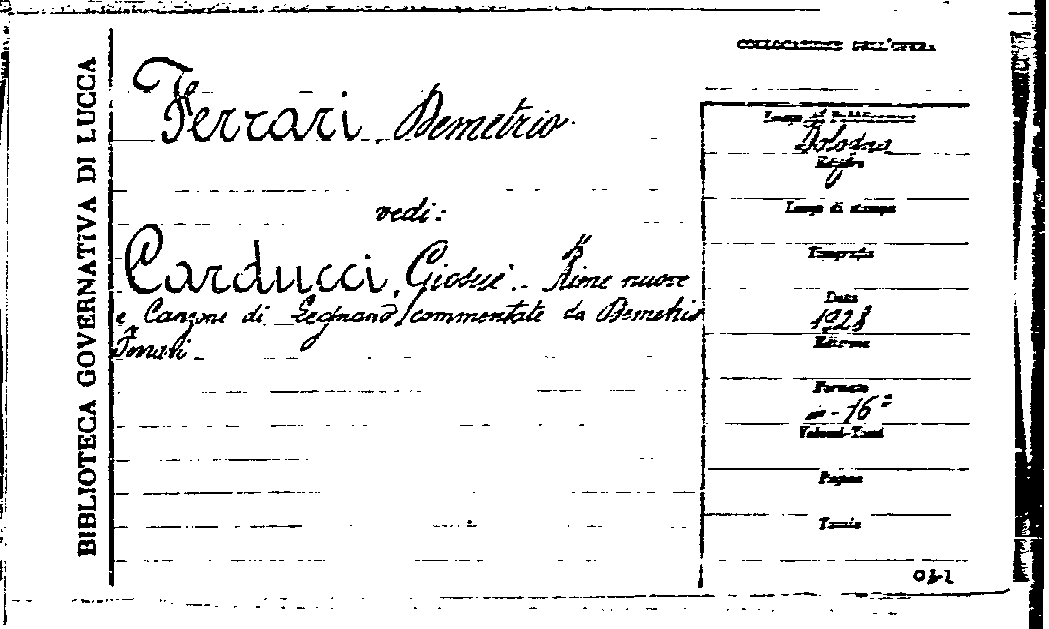 BIBLIOTECA GOVERNATIVA DI LUCCA
COLLOCAZIONE DELL'OPERA
Ferrari, Demetrio
vedi:
Carducci, Giosuè - Rime nuove
e Canzone di Legnano / commentate da Demetrio
Ferrari -
Luogo di Pubblicazione
Bologna
Luogo di stampa
Tipografia
Data
1928
Edizione
Formato
in-16°
Volumi-Tomi
Pagine
Tavole